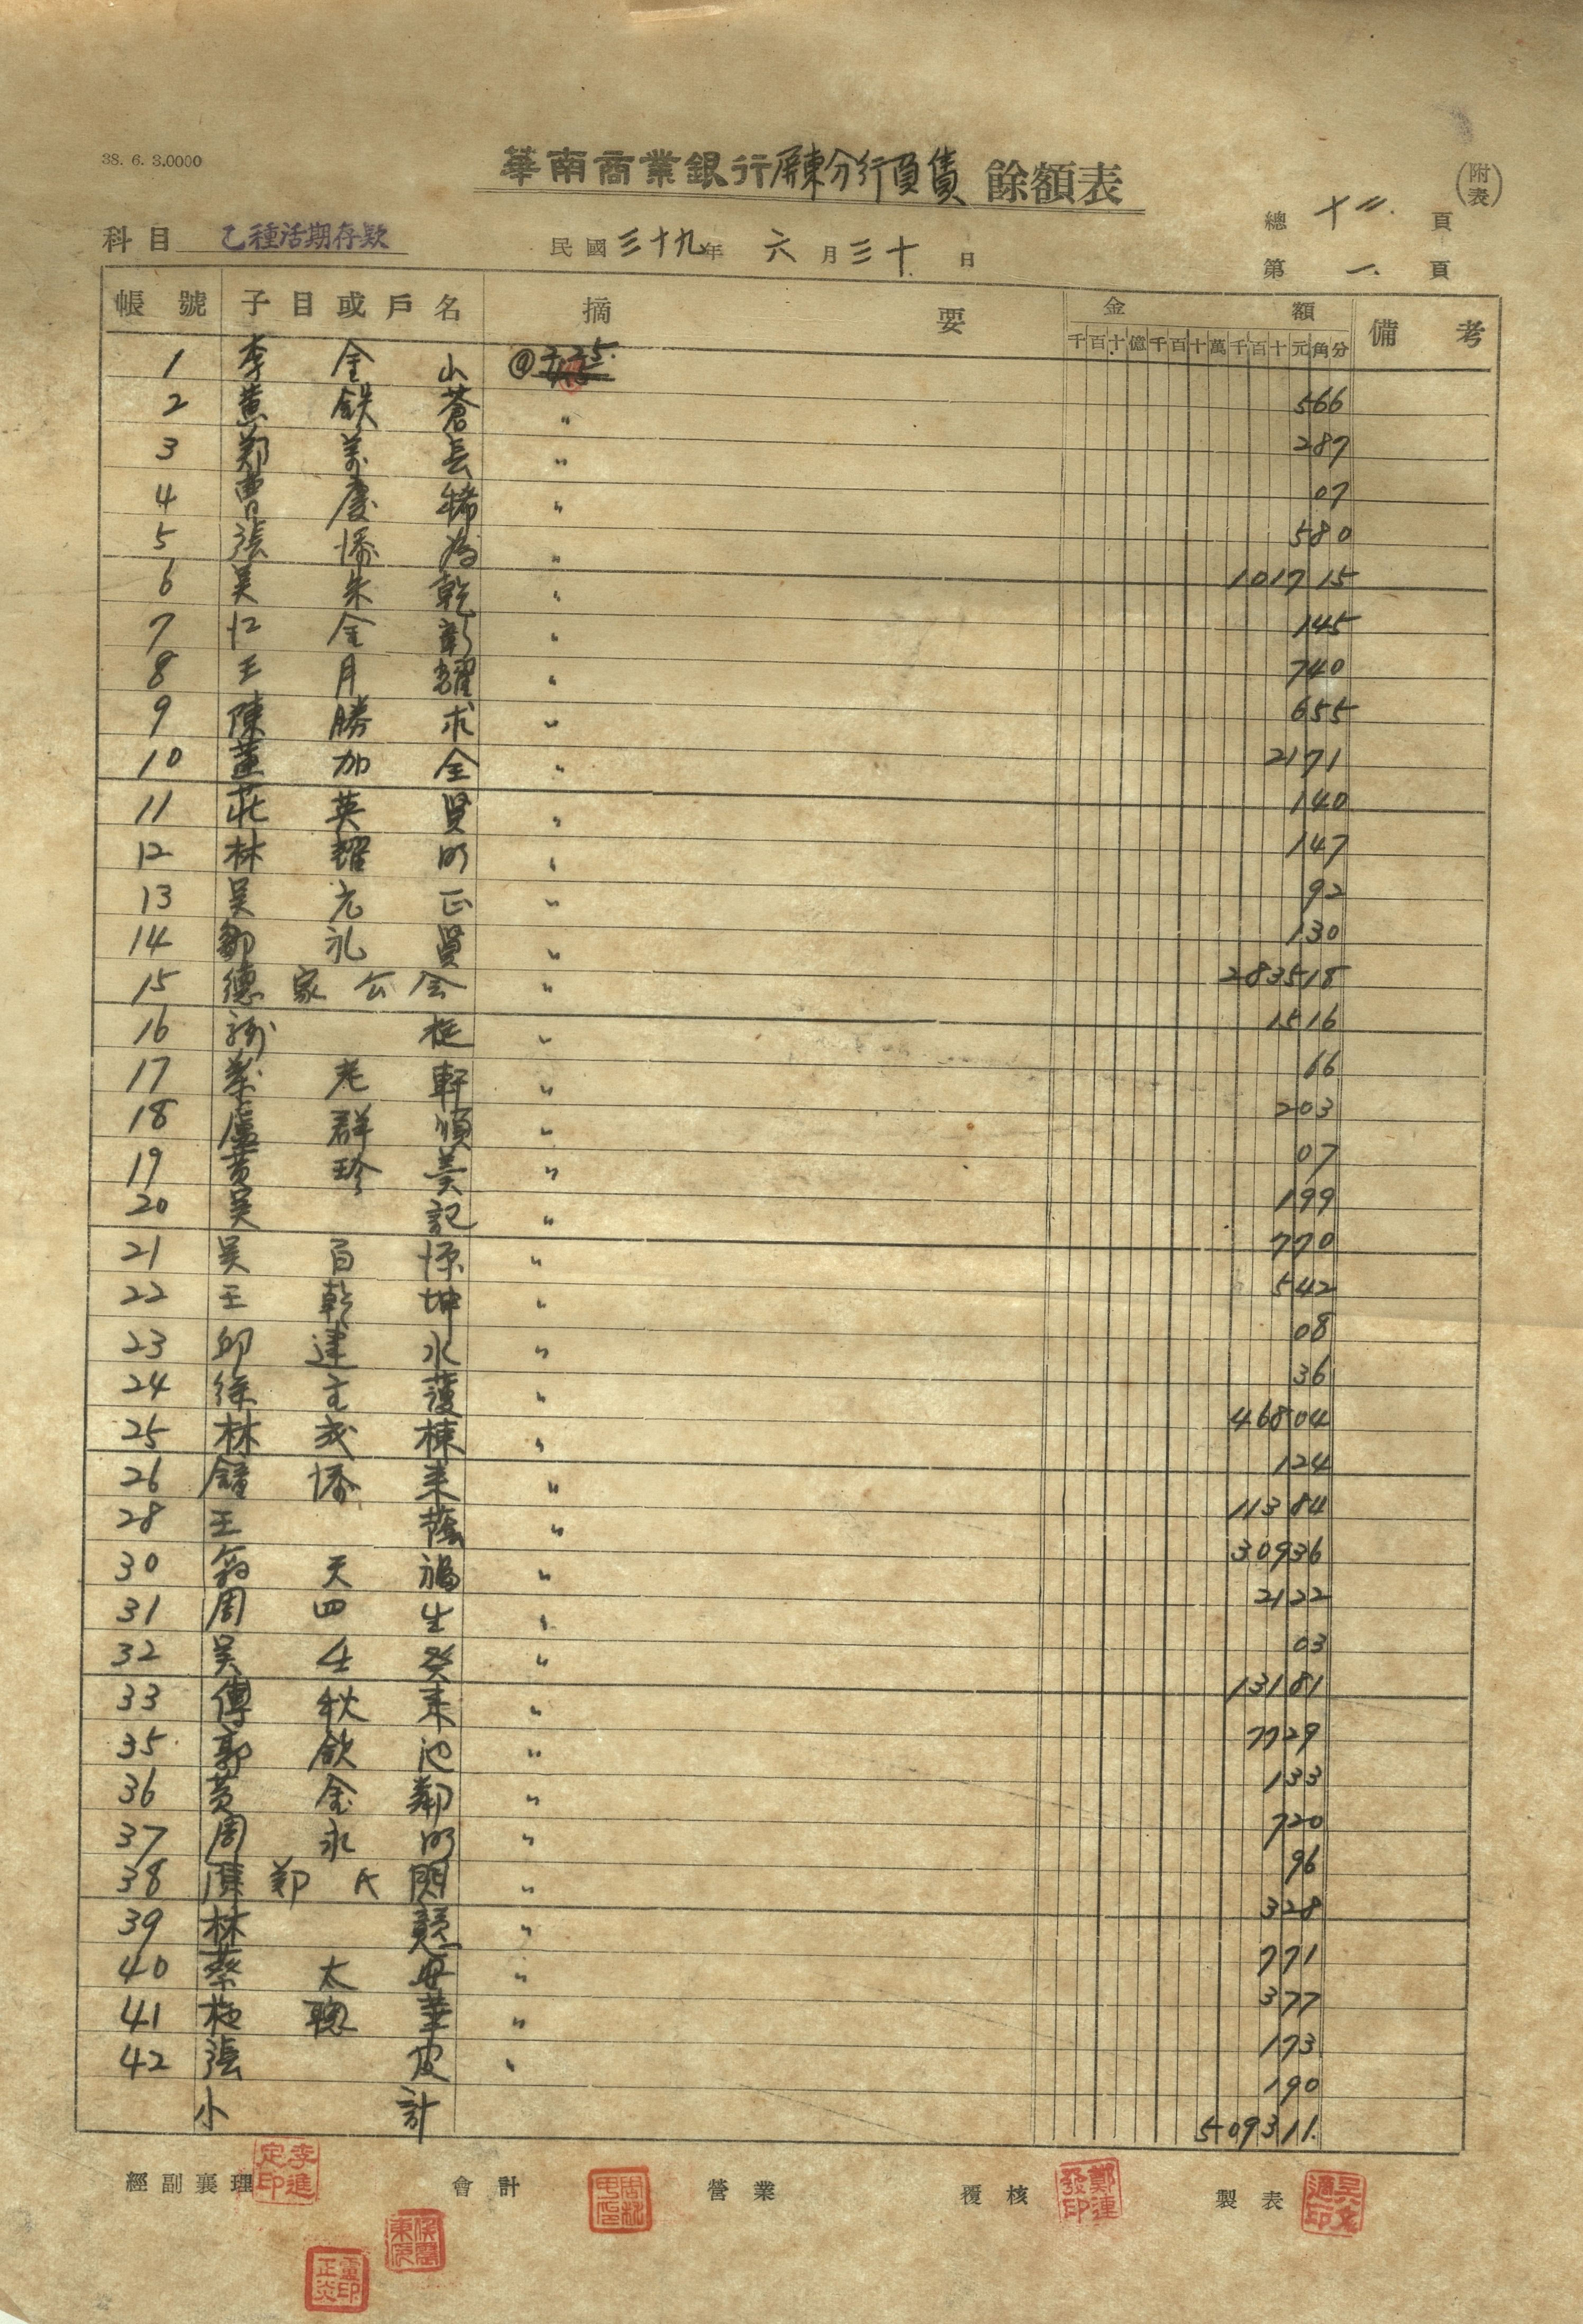 38. 6. 3.0000
華南商業銀行屏東分行負債 餘額表
(附表)
科目 乙種活期存款 民國三十九年 六月三十日
總 十二 頁
第 一 頁
帳號 子目或戶名 摘要 金額 備考
千百十億千百十萬千百十元角分
1 李金山 @
2 黃鉄蒼 〃 566
3 鄭萬長 〃 287
4 曹慶稀 〃 07
5 張添為 〃 580
6 吳朱乾 〃 1017 15
7 江金彰 〃 145
8 王月耀 〃 740
9 陳勝求 〃 655
10 蓮加全 〃 2171
11 莊英賢 〃 140
12 林耀明 〃 147
13 吳元正 〃 92
14 鄒礼賢 〃 130
15 德家公会 〃 283518
16 〃 1516
17 蔡老軒 〃 66
18 盧群順 〃 203
19 黃珍美 〃 07
20 吳記 〃 199
21 吳百源 〃 770
22 王乾坤 〃 542
23 邱建水 〃 08
24 徐主護 〃 36
25 林武棟 〃 46804
26 鐘添來 〃 124
28 王 〃 11384
30 翁天福 〃 30936
31 周四生 〃 2122
32 吳壬癸 〃 03
33 傅秋來 〃 13181
35 郭欽池 〃 7729
36 黃金鄰 〃 133
37 周永明 〃 720
38 陳鄭氏閃 〃 96
39 林 〃 328
40 蔡太安 〃 771
41 施聰華 〃 377
42 張皮 〃 173
190
小計 509311.
經副襄理 會計 營業 覆核 製表
李進定印
鄭連發印
盧正炎印